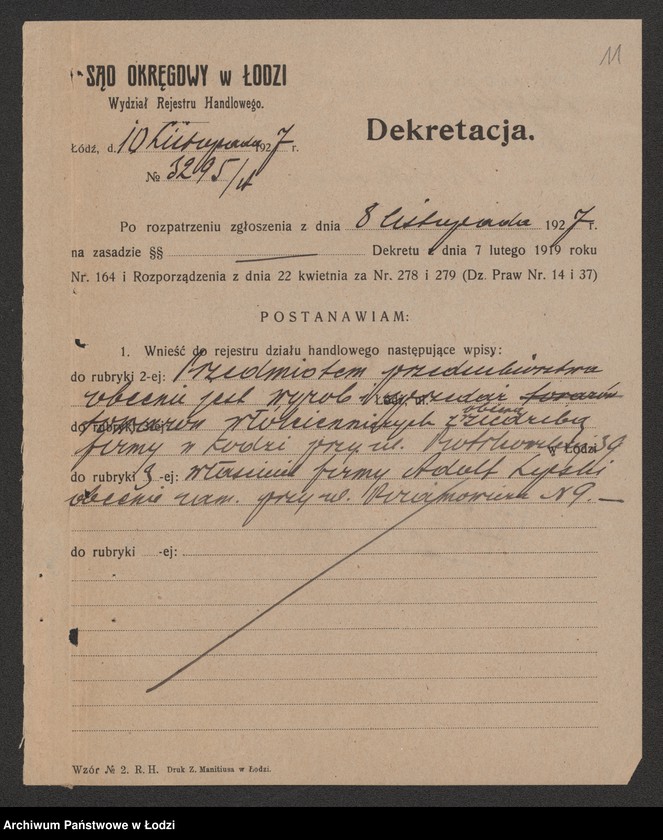 11
SĄD OKRĘGOWY w ŁODZI
Wydział Rejestru Handlowego.
Dekretacja.
Łódź, d. 10 Listopada 1927 r.
№ 3295/A
Po rozpatrzeniu zgłoszenia z dnia 8 listopada 1927 r.
na zasadzie §§ Dekretu z dnia 7 lutego 1919 roku
Nr. 164 i Rozporządzenia z dnia 22 kwietnia za Nr. 278 i 279 (Dz. Praw Nr. 14 i 37)
POSTANAWIAM:
1. Wnieść do rejestru działu handlowego następujące wpisy:
do rubryki 2-ej: Przedmiotem przedsiębiorstwa
obecnie jest wyrób i sprzedaż towarów
do rubryki włókienniczych z siedzibą
obecną
firmy w Łodzi przy ul. 39
w Łodzi
do rubryki 3-ej: właściciel firmy Adolf Lipski
obecnie zam. przy ul. N 9.
do rubryki -ej:
Wzór № 2. R. H. Druk Z. Manitiusa w Łodzi.
Archiwum Państwowe w Łodzi